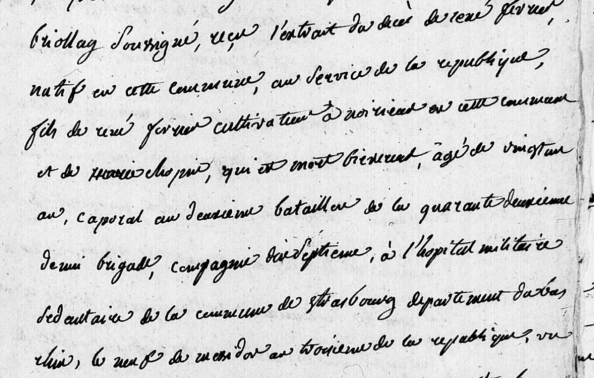 briollay Soussigné, reçu l'extrait du décès de rené fevrier,
natif en cette commune, au service de la republique,
fils de rené fevrier cultivateur à noirieux en cette commune
et de marie chopin, qui est mort fiévreux, âgé de vingt un
an, caporal au deuxieme bataillon de la quarante deuxieme
demi brigade, compagnie dix septieme, à l'hopital militaire
sedentaire de la commune de strasbourg departement du bas
rhin, le neuf de messidor an troisieme de la republique, vu